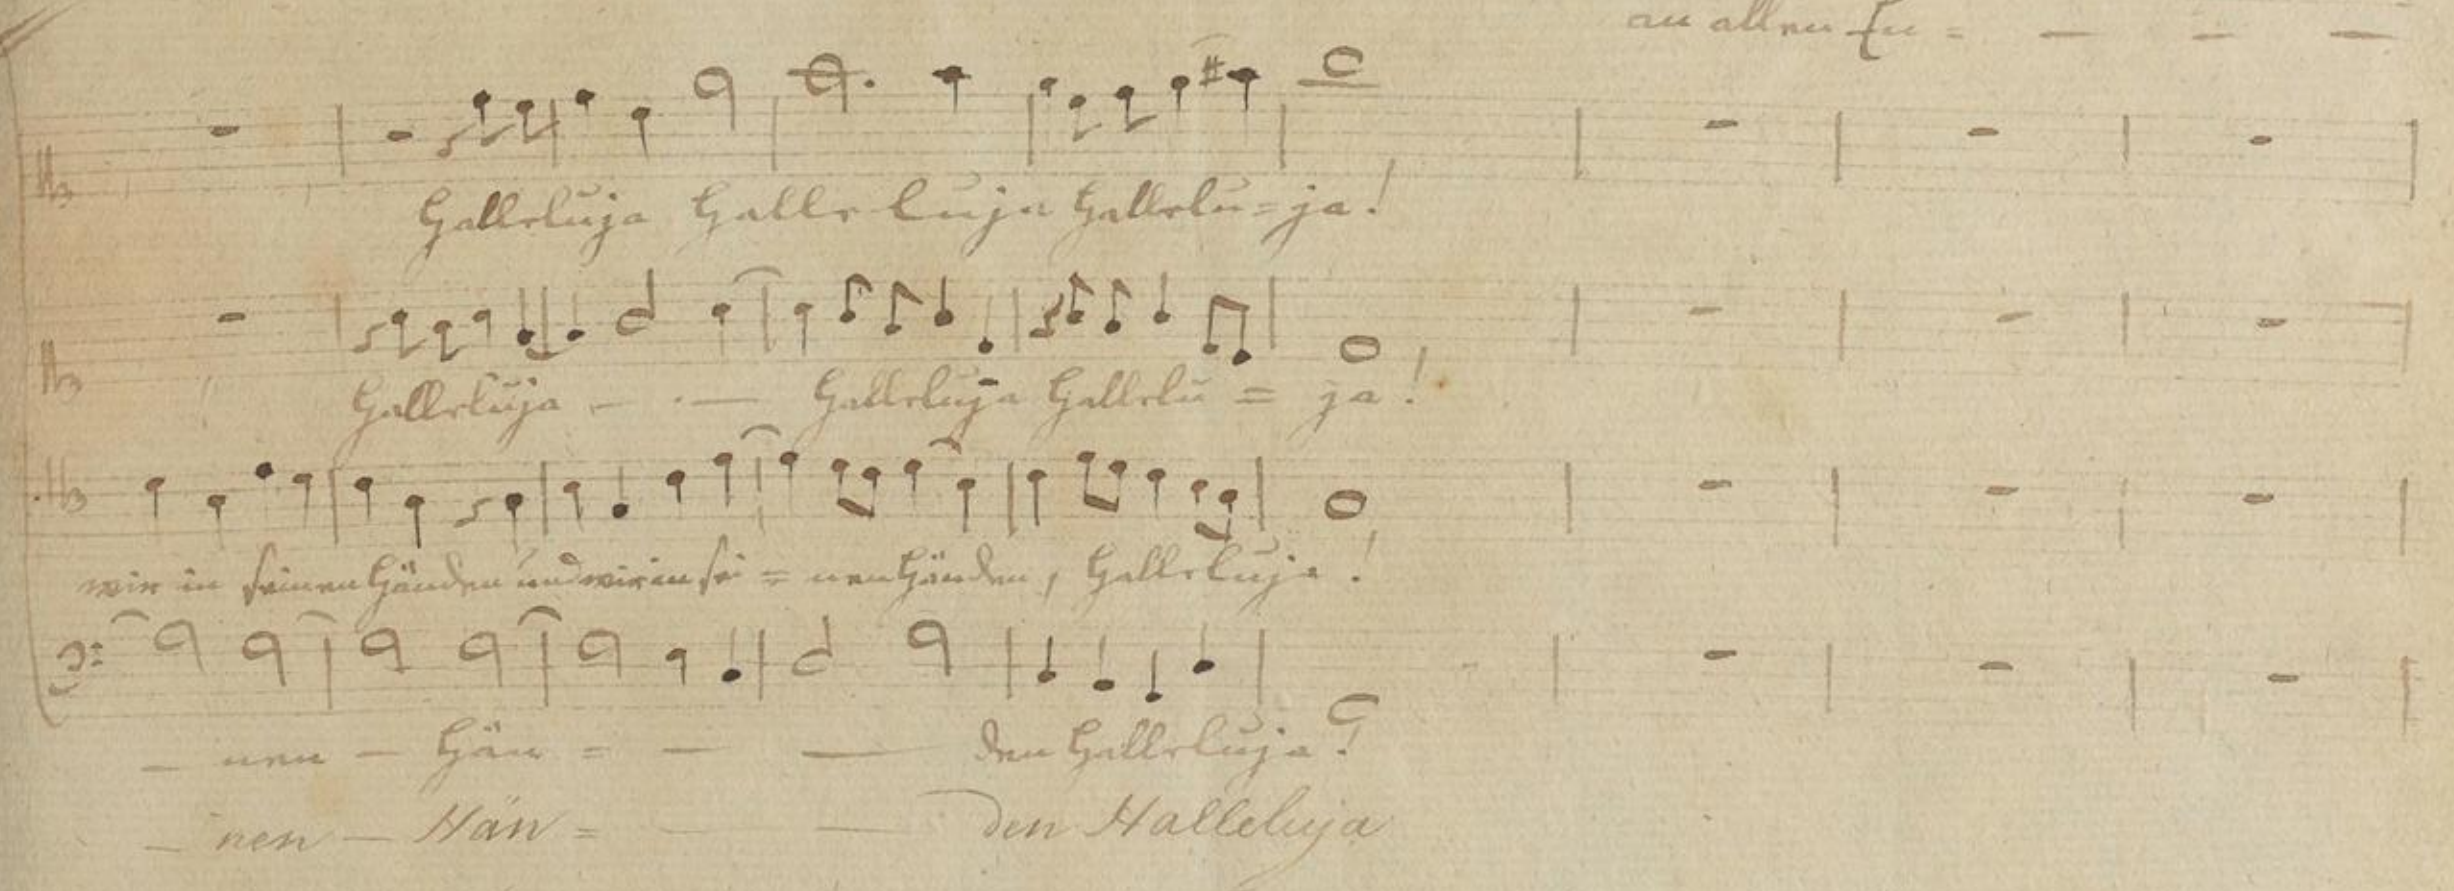 an allen En = — — —
Halleluja Halleluja Hallelu = ja!
Halleluja — . — Halleluja Hallelu = ja!
wir in seinen Händen und wir in sei = nen Händen, Halleluja!
— nen — Hän = — — den Halleluja!
— nen — Hän = — — den Halleluja